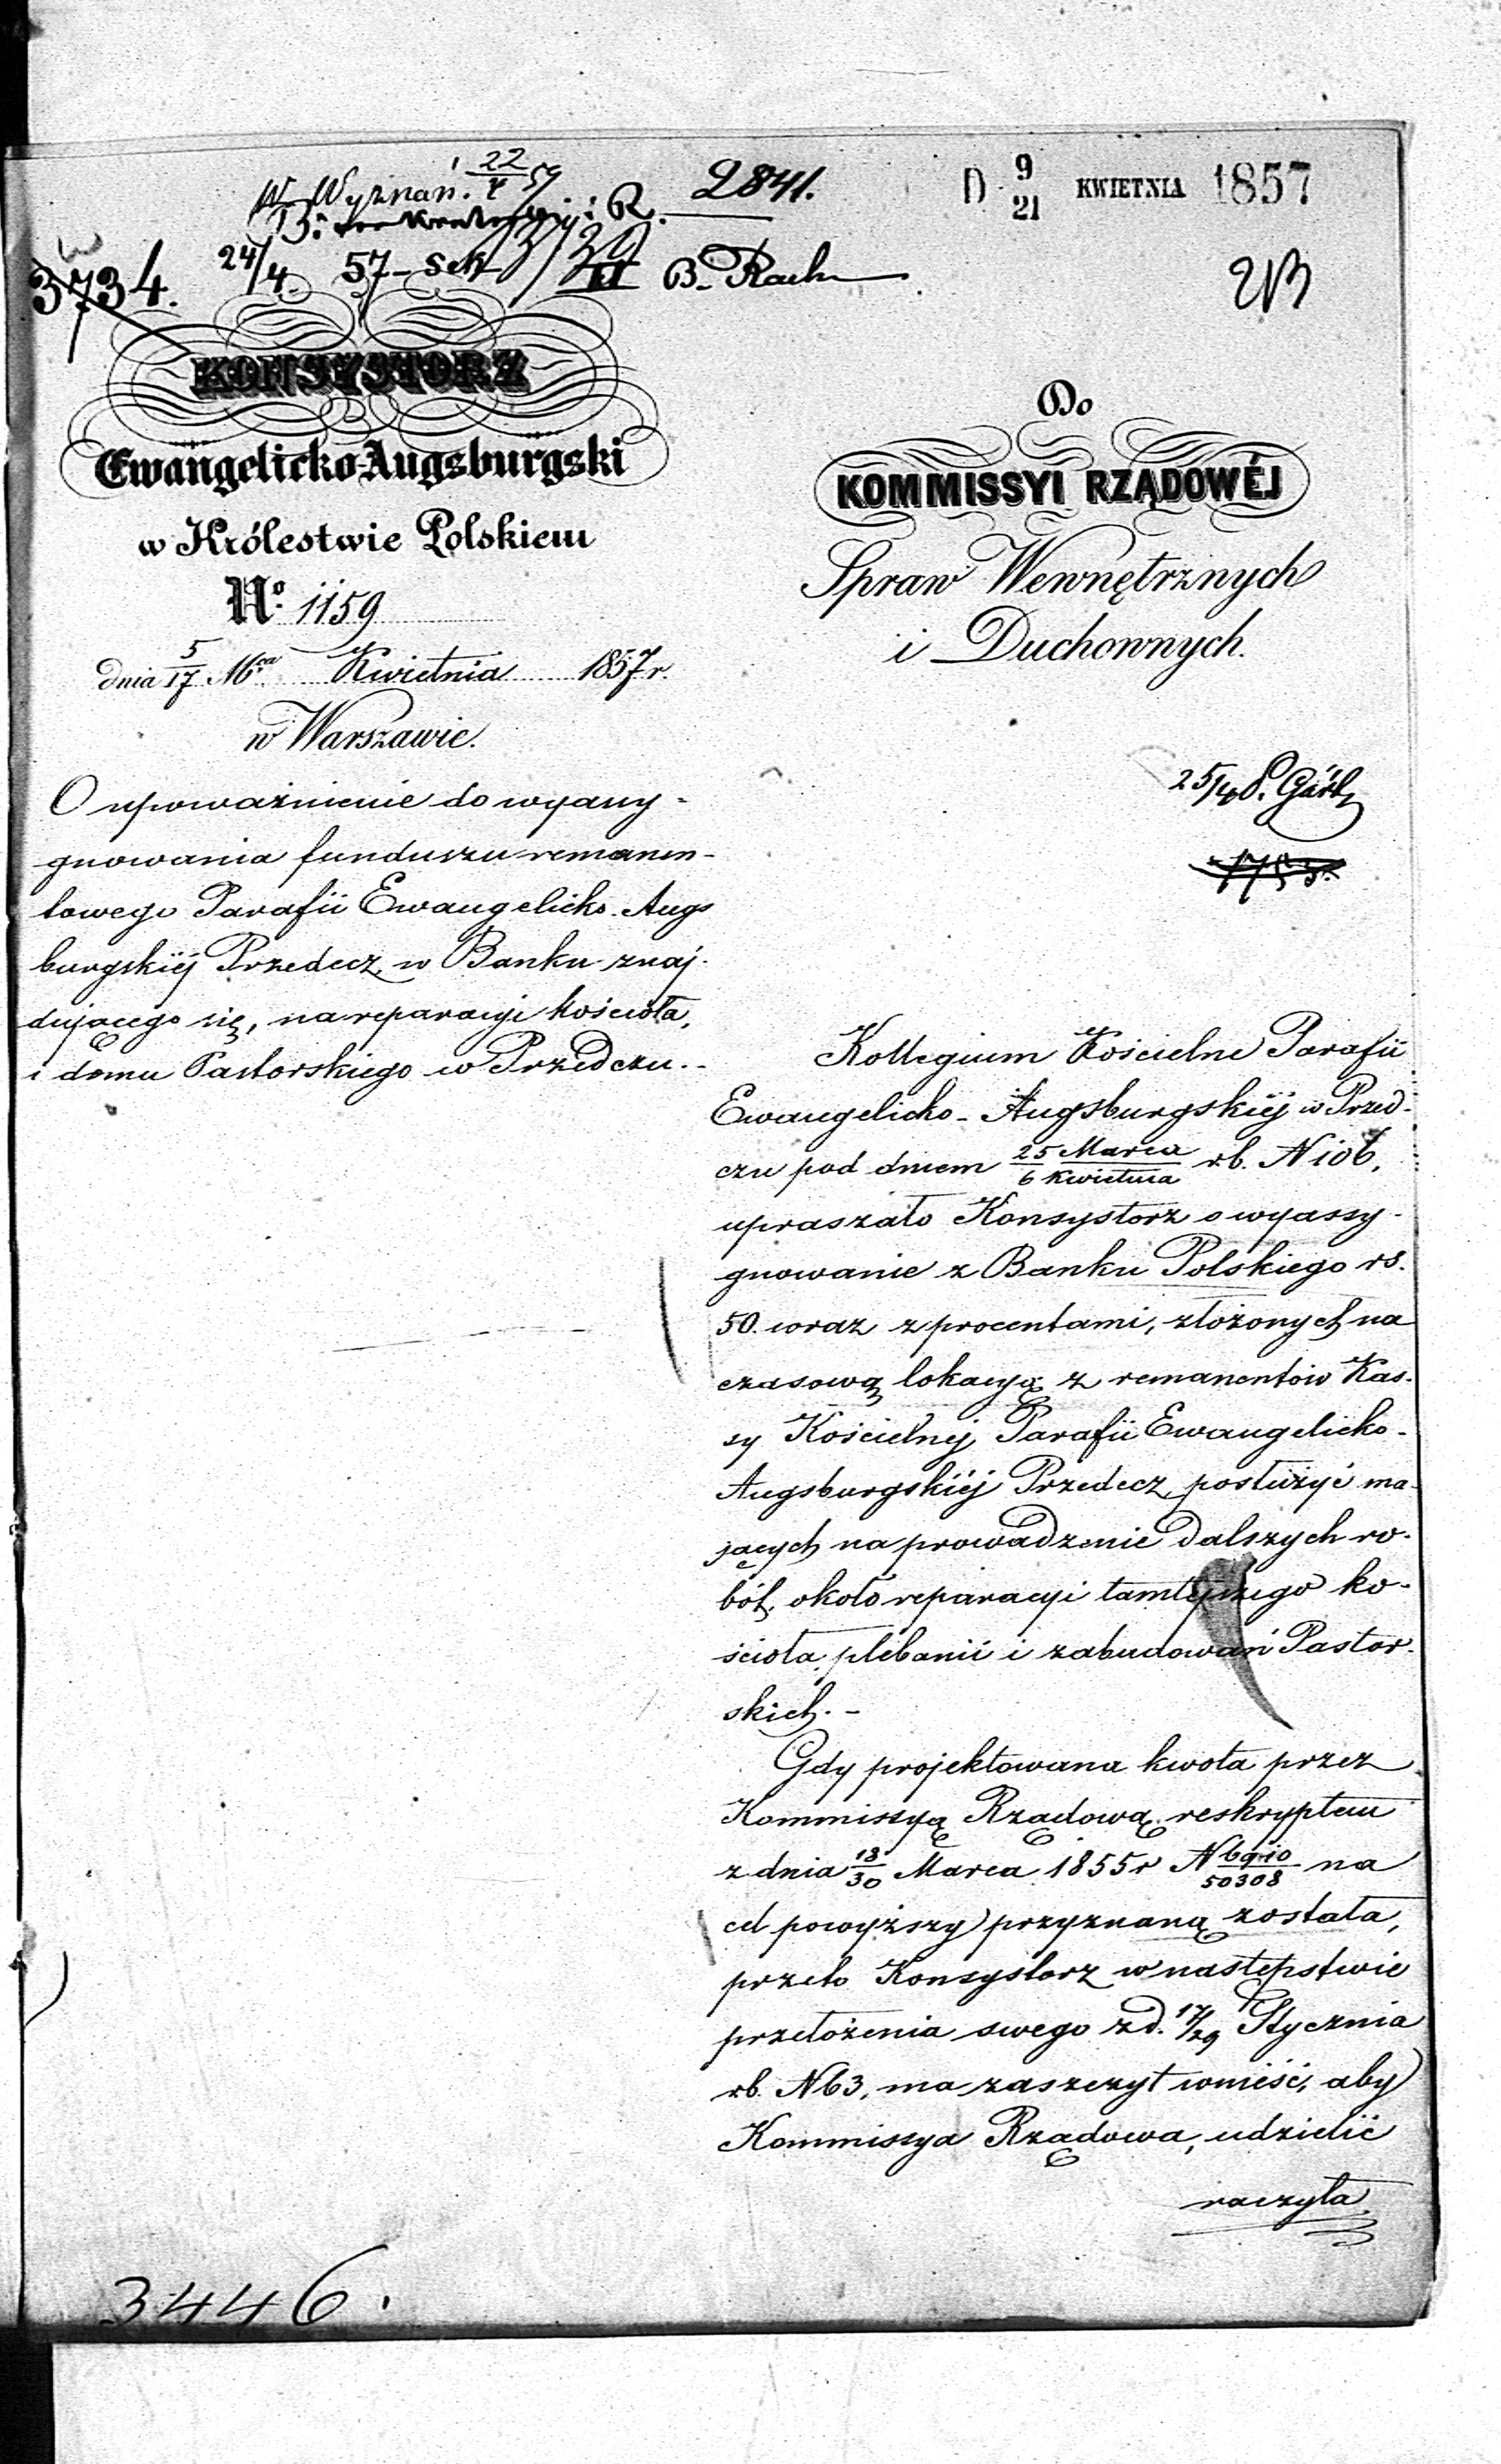 W Wyznań. 22/4 57
2841.
D 9/21 KWIETNIA 1857
3734.
24/4 57 – Sek
B. Rach
KONSYSTORZ
Ewangelicko-Augsburgski
w Królestwie Polskiem
No. 1159
dnia 5/17 Mca Kwietnia 1857 r.
w Warszawie.
O upoważnienie do wyassy-
gnowania funduszu remanen-
towego Parafii Ewangelicko Augs
burgskiéj Przedecz, w Banku znaj-
dującego się, na reparacyi kościoła,
i domu Pastorskiego w Przedczu.-
Do
KOMMISSYI RZĄDOWÉJ
Spraw Wewnętrznych
i Duchownych.
25/4
Kollegium Kościelne Parafii
Ewangelicko-Augsburgskiéj w Przed-
czu pod dniem 25 Marca/6 Kwietnia rb. N 106,
upraszało Konsystorz o wyassy-
gnowanie z Banku Polskiego rs.
50. wraz z procentami, złożonych na
czasową lokacyą z remanentów Kas-
sy Kościelnej Parafii Ewangelicko-
Augsburgskiéj Przedecz, posłużyć ma-
jących na prowadzenie dalszych ro-
bót, około reparacyi tamtejszego ko-
ścioła, plebanii i zabudowań Pastor-
skich.-
Gdy projektowana kwota przez
Kommissyą Rządową reskryptem
z dnia 18/30 Marca 1855 r N 6910/50308 na
cel powyższy przyznaną została,
przeto Konsystorz w następstwie
przełożenia swego z d. 17/29 Stycznia
rb. N 63, ma zaszczyt wnieść, aby
Kommissya Rządowa, udzielić
raczyła
3446.